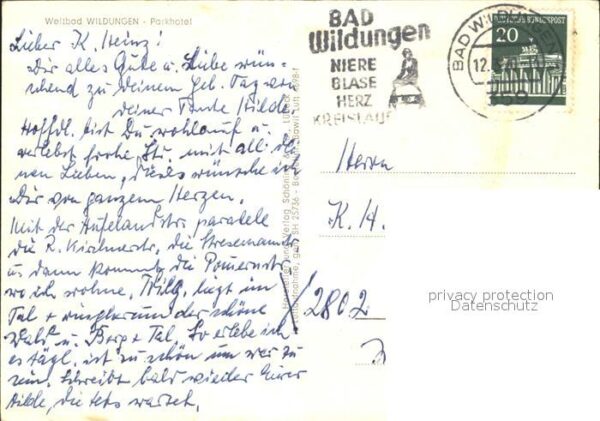 Weltbad WILDUNGEN - Parkhotel
Lieber K. Heinz!
Dir alles Gute u. Liebe wün-
schend zu Deinem Geb. Tag von
Deiner Tante Hilde.
Hofftl. bist Du wohlauf u.
verlebst frohe Std. mit all dei-
nen Lieben, dieses wünsche ich
Dir von ganzem Herzen.
Mit der Hufelandstr. paralele
die R. Kirchnerstr., die Stresemannstr.
u. dann kommt die Pommernstr.
wo ich wohne. Wildg. liegt im
Tal + ringsherum der schöne
Wald u. Berg + Tal. So erlebe ich
es tägl. ist zu schön um wahr zu
sein. Schreibt bald wieder Eurer
Hilde, die stets wartet.
BAD
Wildungen
NIERE
BLASE
HERZ
KREISLAUF
BAD WILDUNGEN
12.
359
DEUTSCHE BUNDESPOST
20
Herrn
K. H.
2802
privacy protection
Datenschutz